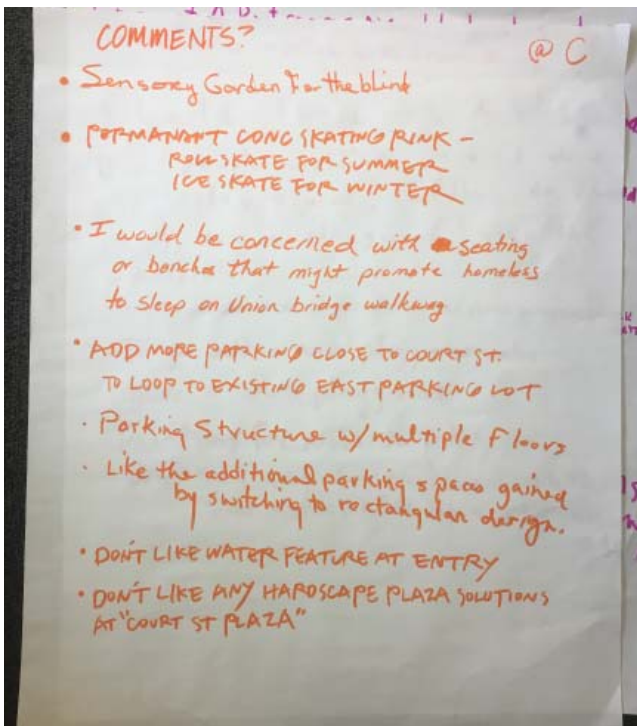 COMMENTS?
@ C
• Sensory Garden For the blind
• PERMANANT CONC SKATING RINK –
ROLL SKATE FOR SUMMER
ICE SKATE FOR WINTER
• I would be concerned with seating
or benches that might promote homeless
to sleep on Union bridge walkway
• ADD MORE PARKING CLOSE TO COURT ST.
TO LOOP TO EXISTING EAST PARKING LOT
• Parking Structure w/ multiple Floors
• Like the additional parking spaces gained
by switching to rectangular design.
• DON'T LIKE WATER FEATURE AT ENTRY
• DON'T LIKE ANY HARDSCAPE PLAZA SOLUTIONS
AT "COURT ST PLAZA"